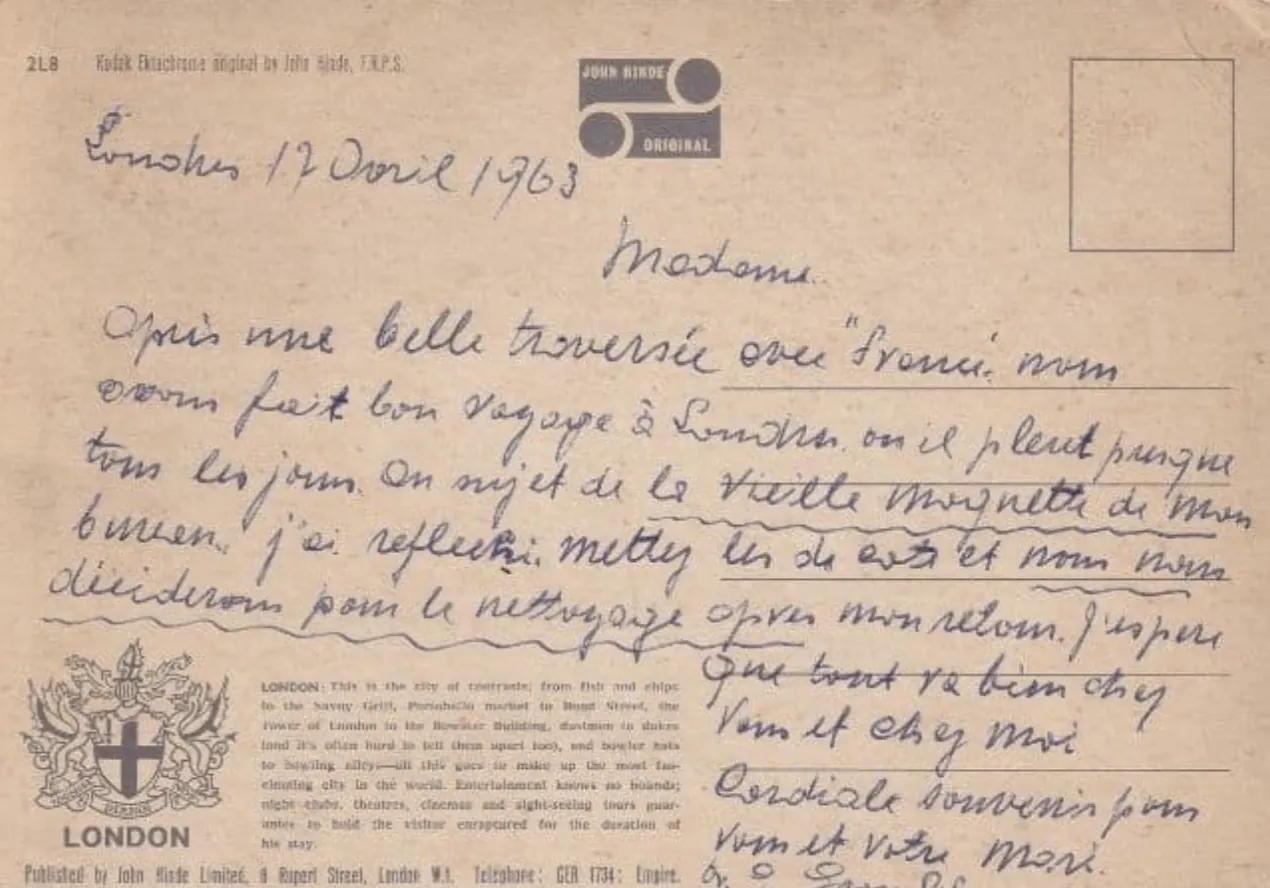 2L8 Kodak Ektachrome original by John Hinde, F.R.P.S.
JOHN HINDE
ORIGINAL
Londres 17 Avril 1963
Madame.
Après une belle traversée avec "France". nous
avons fait bon voyage à Londres. ou il pleut presque
tous les jours. Au sujet de la vieille moquette de mon
bureau. j'ai reflechi. mettez les de coté et nous nous
déciderons pour le nettoyage apres mon retour. J'espere
que tout va bien chez
vous et chez moi
Cordiale souvenir pour
vous et votre Mari.
LONDON: This is the city of contrasts; from fish and chips
to the Savoy Grill, Portobello market to Bond Street, the
Tower of London to the Bowater Building, dustmen to dukes
(and it's often hard to tell them apart too), and bowler hats
to bowling alleys—all this goes to make up the most fas-
cinating city in the world. Entertainment knows no bounds;
night clubs, theatres, cinemas and sight-seeing tours guar-
antee to hold the visitor enraptured for the duration of
his stay.
LONDON
Published by John Hinde Limited, 6 Rupert Street, London W.1. Telephone: GER 1734: Empire.